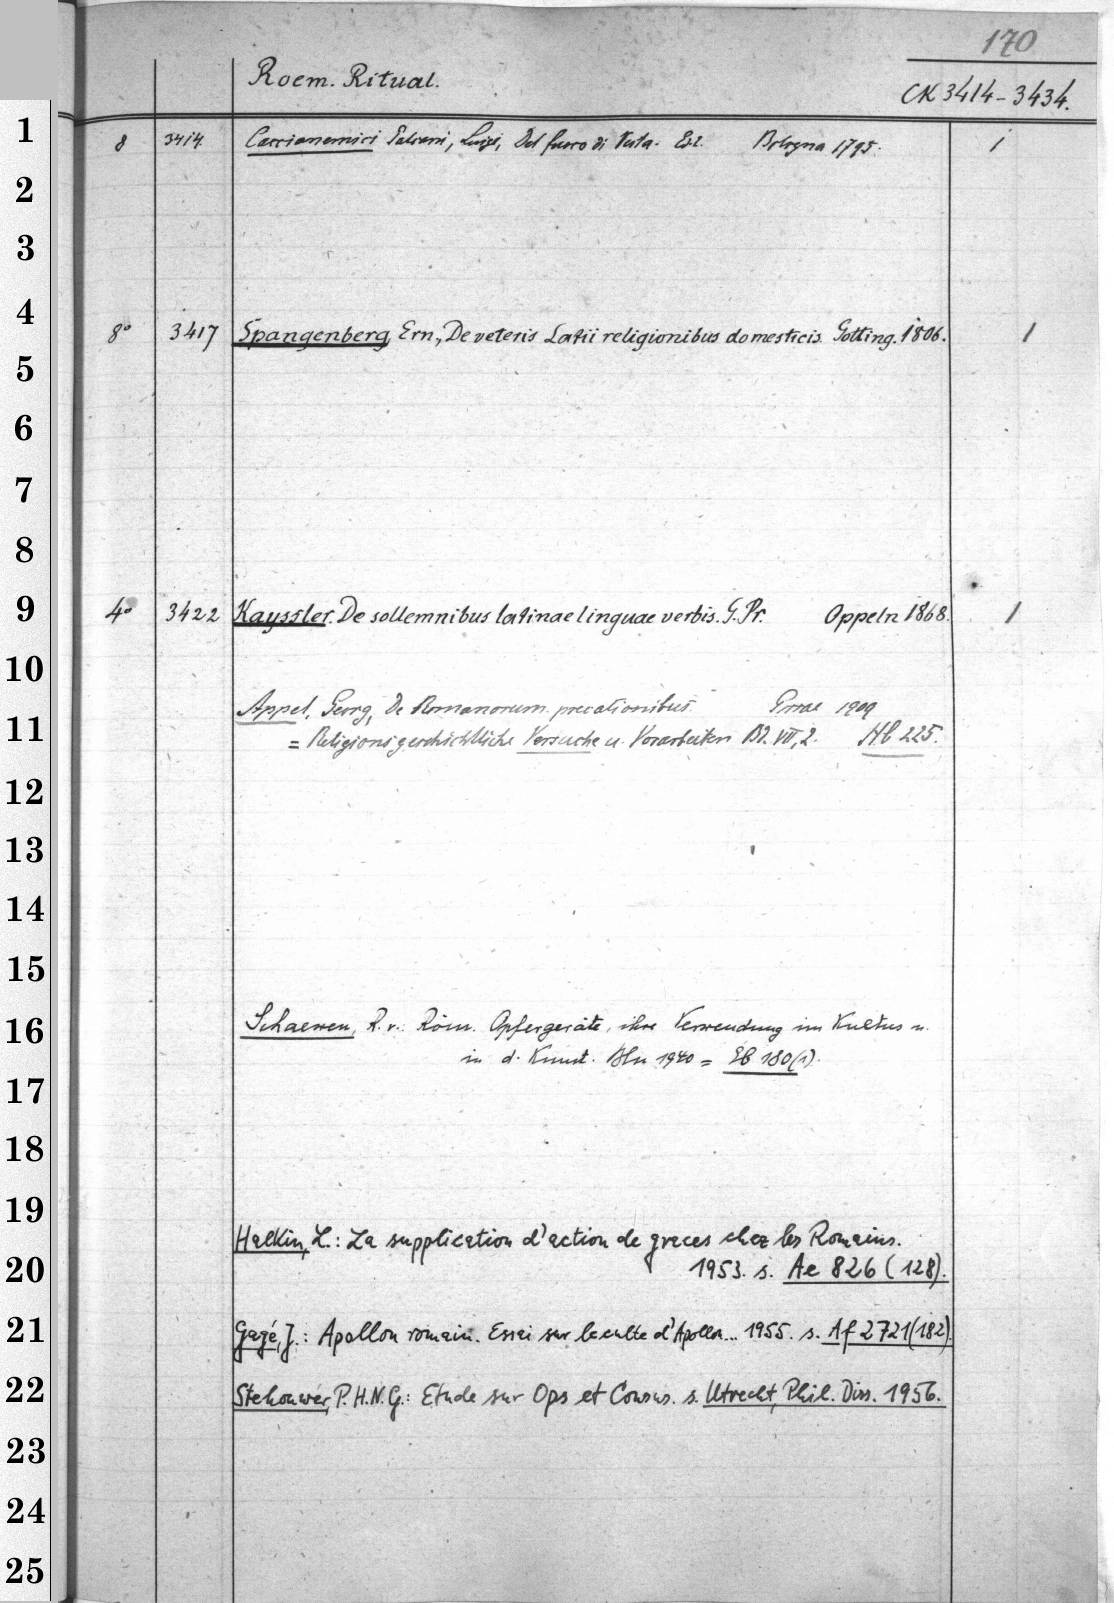 170
Roem. Ritual.
CK 3414-3434.
1 8 3414. Caccianemici Palcani, Luigi, Del fuoco di Vesta. Bologna 1795. 1
2
3
4 8° 3417 Spangenberg, Ern., De veteris Latii religionibus domesticis. Gotting. 1806. 1
5
6
7
8
9 4° 3422 Kayssler. De sollemnibus latinae linguae verbis. G. Pr. Oppeln 1868. 1
10
Appel, Georg, De Romanorum precationibus. 1909
11 = Religionsgeschichtliche Versuche u. Vorarbeiten Bd. VII, 2. Hb 225.
12
13
14
15
16 Schaewen, R. v.: Röm. Opfergeräte, ihre Verwendung im Kultus u.
in d. Kunst. Bln 1940 = Eb 180(1).
17
18
19
Halkin, L.: La supplication d'action de graces chez les Romains.
20 1953. s. Ae 826 (128).
21 Gagé, J.: Apollon romain. Essai sur le culte d'Apollon... 1955. s. Af 2721(182).
22 Stehouwer, P.H.N.G.: Etude sur Ops et Consus. s. Utrecht, Phil. Diss. 1956.
23
24
25